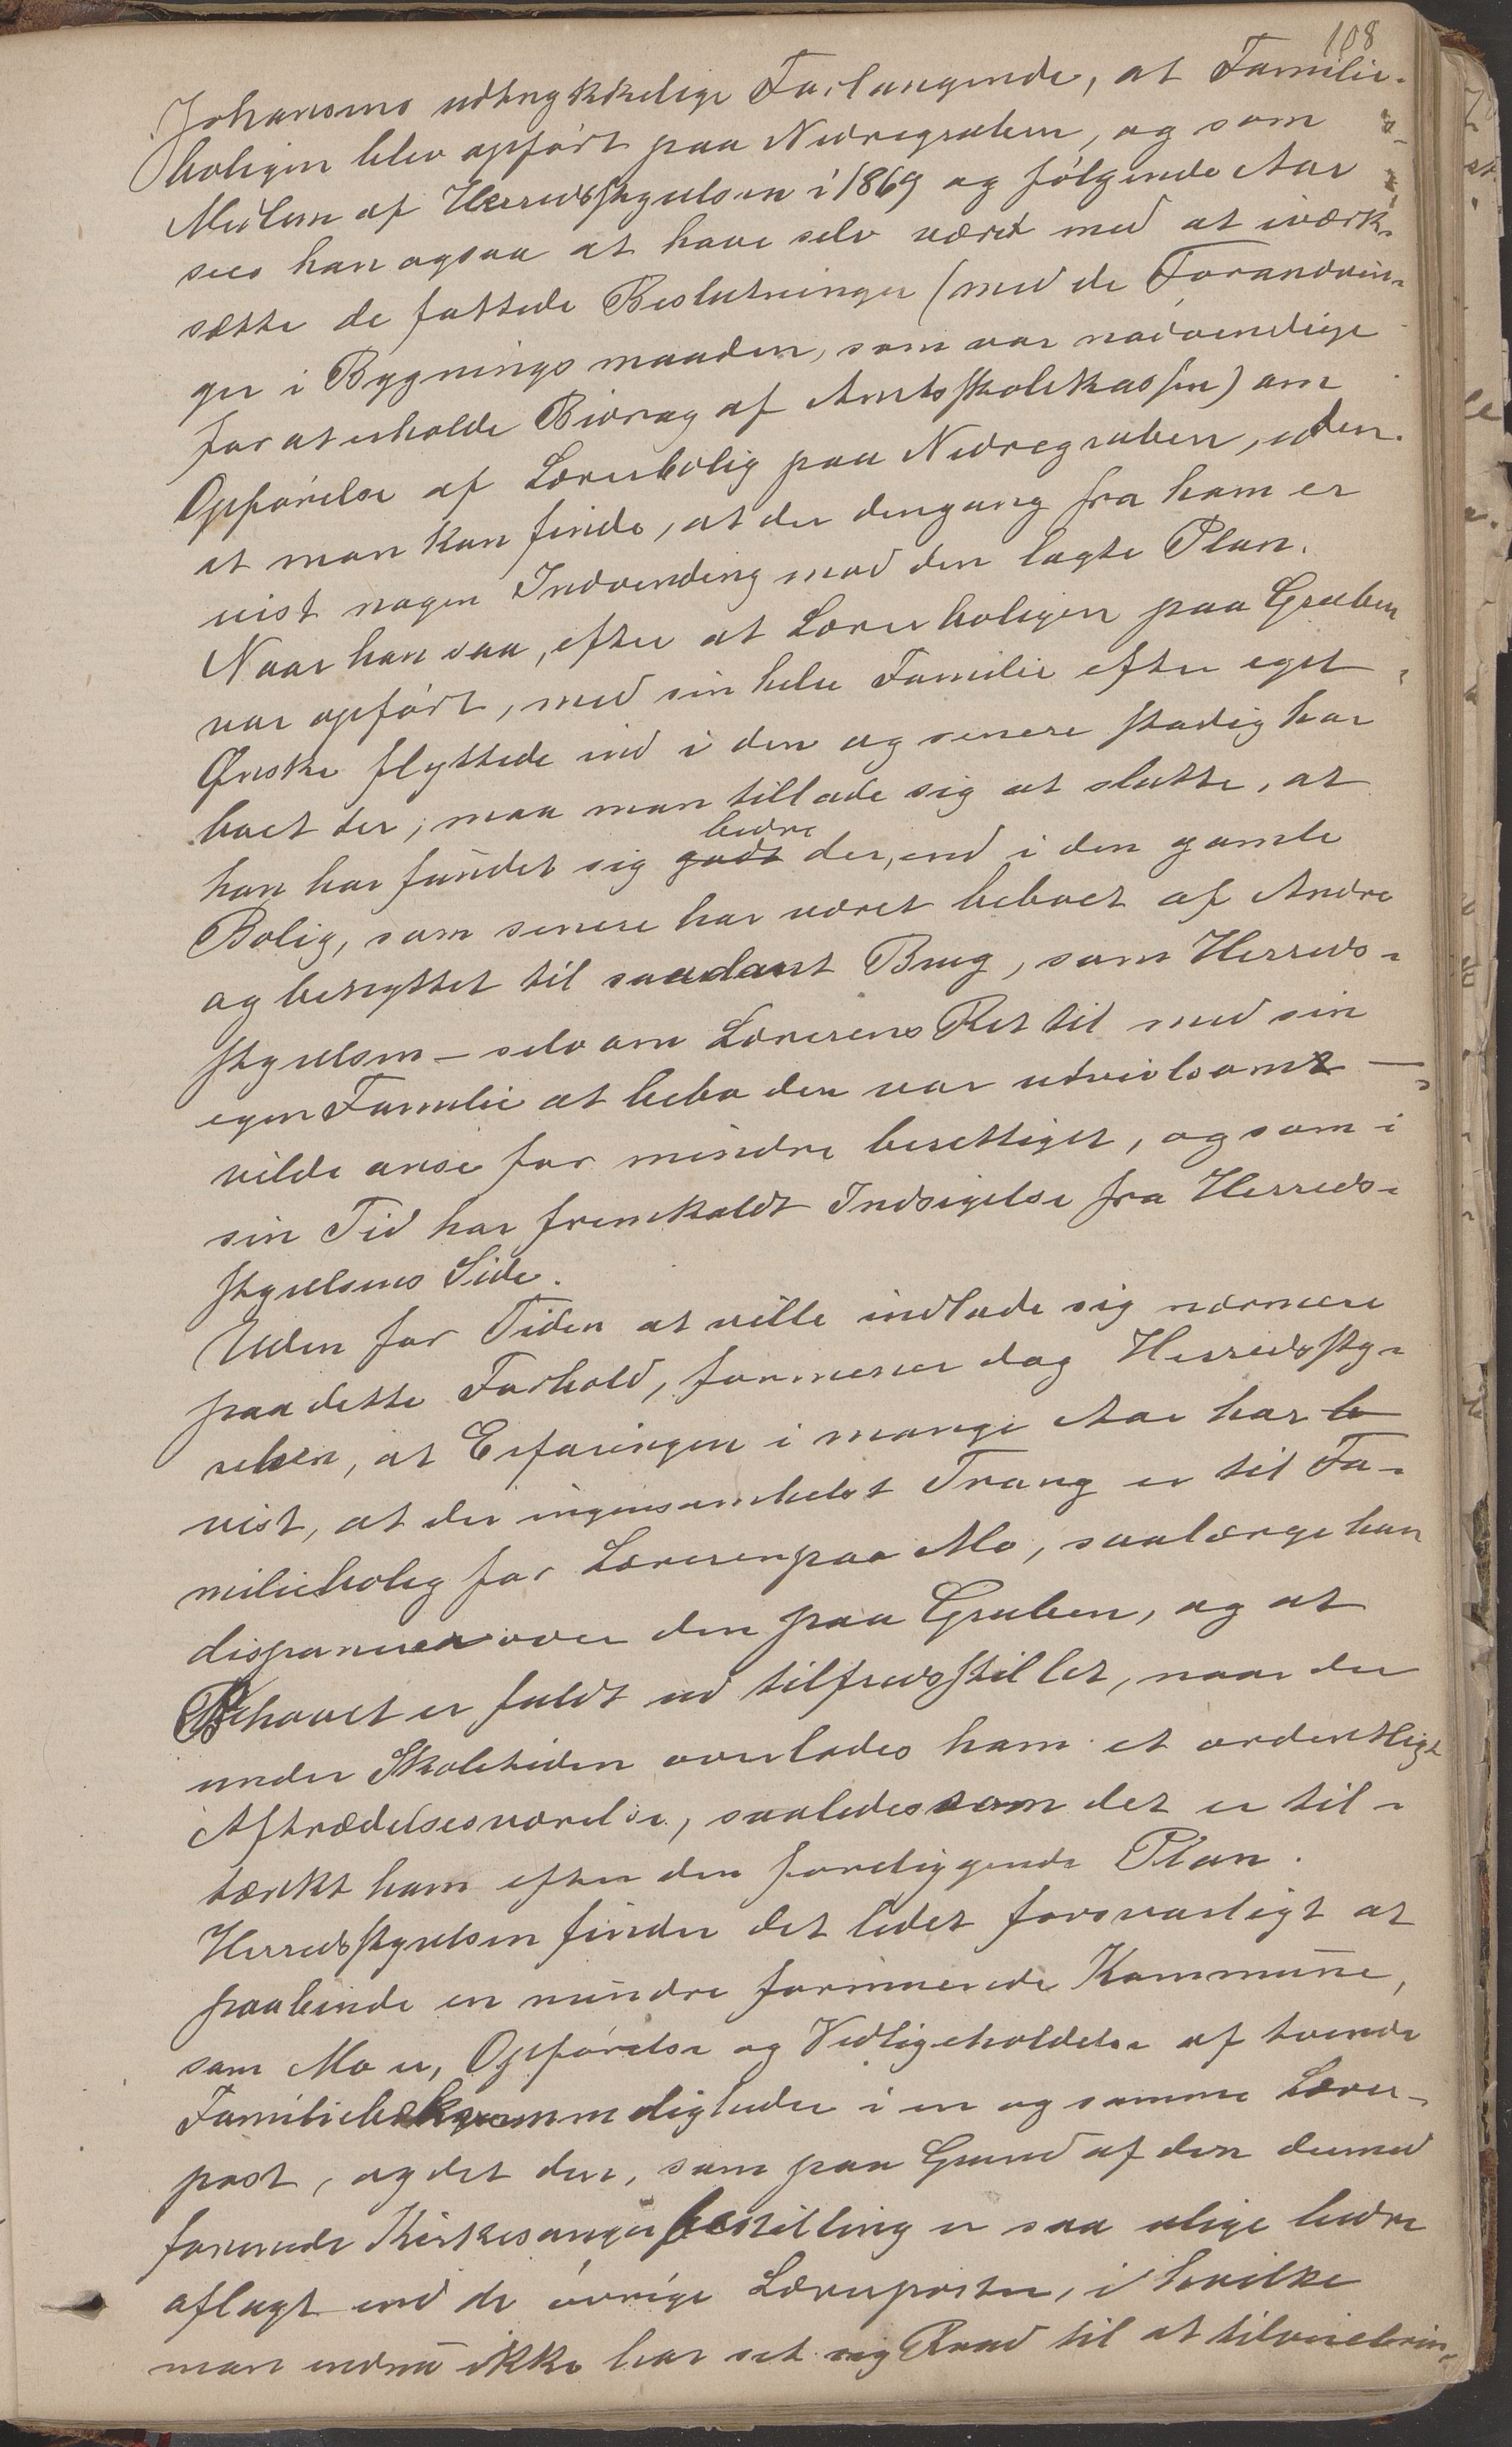 108
Johansens udtrykkelige Forlangende, at Familie-
boligen blev opført paa Nedregruben, og som
Medlem af Herredsstyrelsen i 1869 og følgende Aar
sees han ogsaa at have selv været med at iværk-
sætte de fattede Beslutninger (med de Forandrin-
ger i Bygningsmaaden, som var nødvendige
for at erholde Bidrag af Amtsskolekassen) om
Opførelse af Lærerbolig paa Nedregruben, uden
at man kan finde, at der dengang fra ham er
reist nogen Indvending mod den lagte Plan.
Naar han saa, efter at Lærerboligen paa Gruben
var opført, med sin hele Familie efter eget
Ønske flyttede ind i den og senere stadig har
boet der, maa man tillade sig at slutte, at
han har fundet sig godt bedre der, end i den gamle
Bolig, som senere har været beboet af Andre
og benyttet til saadant Brug, som Herreds-
styrelsen – selv om Lærerens Ret til med sin
egen Familie at bebo den var utvilsomt –
vilde anse for mindre berettiget, og som i
sin Tid har fremkaldt Indsigelse fra Herreds-
styrelsens Side.
Uden for Tiden at ville indlade sig nærmere
paa dette Forhold, formener dog Herredssty-
relsen, at Erfaringen i mange Aar har b
vist, at der ingensomhelst Trang er til Fa-
miliebolig for Læreren paa Mo, saalænge han
disponerer over den paa Gruben, og at
Behovet er fuldt ud tilfredsstillet, naar der
under Skoletiden overlades ham et ordentligt
Aftrædelsesværelse, saaledes som det er til-
tænkt ham efter den foreliggende Plan.
Herredsstyrelsen finder det lidet forsvarligt at
paabinde en mindre formuende Kommune,
som Mo er, Opførelse og Vedligeholdelse af tvende
Familiebekvemmeligheder i en og samme Lærer-
post, og det den, som paa Grund af den dermed
forenede Kirkesangerbestilling er saa ulige bedre
aflagt end de øvrige Lærerposter, i hvilke
man endnu ikke har set sig Raad til at tilveiebrin-